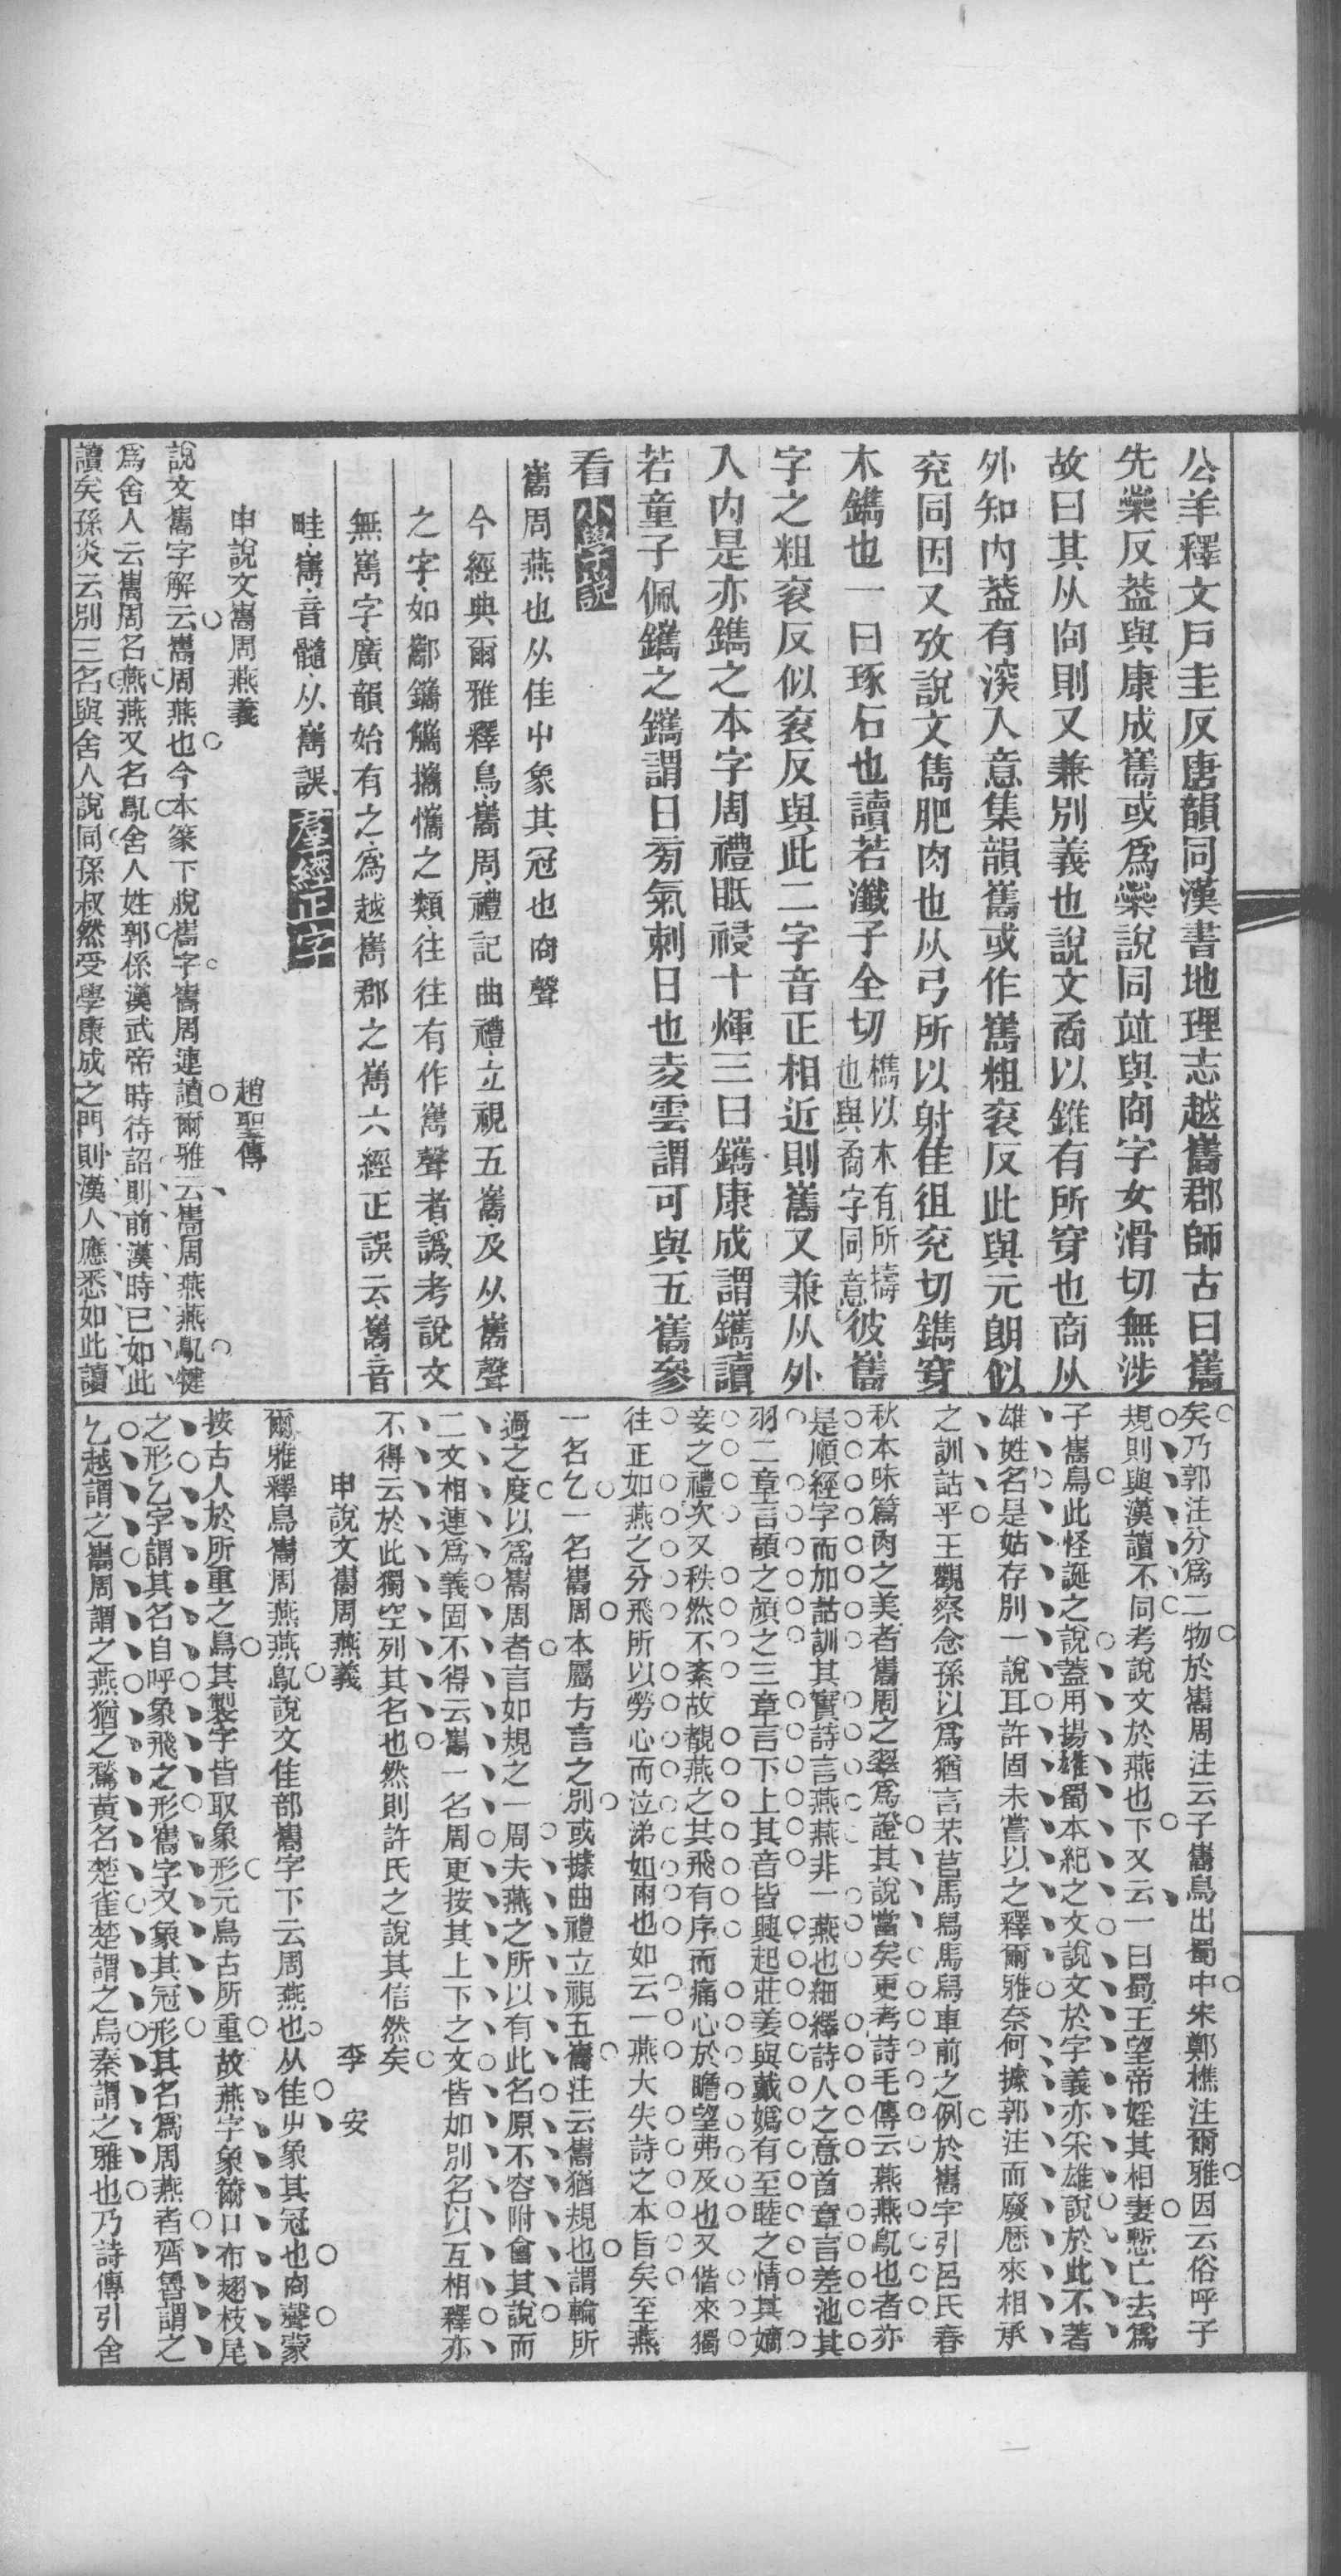 公羊釋文戶圭反唐韻同漢書地理志越巂郡師古曰巂
先橤反葢與康成巂或爲橤說同竝與㕯字女滑切無涉
故曰其从㕯則又兼別義也說文矞以錐有所穿也商从
外知內葢有深入意集韻巂或作嶲粗兖反此與元朗似
兖同因又攷說文雋肥肉也从弓所以射隹徂兖切鐫穿
木鐫也一曰琢石也讀若瀸子全切檇以木有所擣也與矞字同意彼巂
字之粗兖反似兖反與此二字音正相近則巂又兼从外
入內是亦鐫之本字周禮眡祲十煇三曰鑴康成謂鑴讀
若童子佩鑴之鑴謂日旁氣刺日也夌雲謂可與五巂參
看小學說
巂周燕也从隹屮象其冠也㕯聲
今經典爾雅釋鳥巂周禮記曲禮立視五巂及从巂聲
之字如酅鑴觿攜懏之類往往有作嶲聲者譌考說文
無嶲字廣韻始有之爲越嶲郡之嶲六經正誤云巂音
畦嶲音髓从嶲誤羣經正字
申說文巂周燕義　趙聖傳
說文巂字解云巂周燕也今本篆下脫巂字巂周連讀爾雅云巂周燕燕鳦犍
爲舍人云巂周名燕燕又名鳦舍人姓郭係漢武帝時待詔則前漢時已如此
讀矣孫炎云別三名與舍人說同孫叔然受學康成之門則漢人應悉如此讀
矣乃郭注分爲二物於巂周注云子巂鳥出蜀中宋鄭樵注爾雅因云俗呼子
規則與漢讀不同考說文於燕也下又云一曰蜀王望帝婬其相妻慙亡去爲
子巂鳥此怪誕之說蓋用揚雄蜀本紀之文說文於字義亦采雄說於此不著
雄姓名是姑存別一說耳許固未嘗以之釋爾雅奈何據郭注而廢歷來相承
之訓詁乎王觀察念孫以爲猶言芣苢馬舄馬舄車前之例於巂字引呂氏春
秋本味篇肉之美者巂周之翠爲證其說當矣更考詩毛傳云燕燕鳦也者亦
是順經字而加詁訓其實詩言燕燕非一燕也細繹詩人之意首章言差池其
羽二章言頡之頏之三章言下上其音皆興起莊姜與戴嬀有至睦之情其嫡
妾之禮次又秩然不紊故覩燕之其飛有序而痛心於瞻望弗及也又偕來獨
往正如燕之分飛所以勞心而泣涕如雨也如云一燕大失詩之本旨矣至燕
一名乙一名巂周本屬方言之別或據曲禮立視五巂注云巂猶規也謂輪所
過之度以爲巂周者言如規之一周夫燕之所以有此名原不容附會其說而
二文相連爲義固不得云巂一名周更按其上下之文皆如別名以互相釋亦
不得云於此獨空列其名也然則許氏之說其信然矣
申說文巂周燕義　李　安
爾雅釋鳥巂周燕燕鳦說文隹部巂字下云周燕也从隹屮象其冠也㕯聲蒙
按古人於所重之鳥其製字皆取象形元鳥古所重故燕字象籋口布翄枝尾
之形乙字謂其名自呼象飛之形巂字又象其冠形其名爲周燕者齊魯謂之
乙越謂之巂周謂之燕猶之鶖黃名楚雀楚謂之烏秦謂之雅也乃詩傳引舍